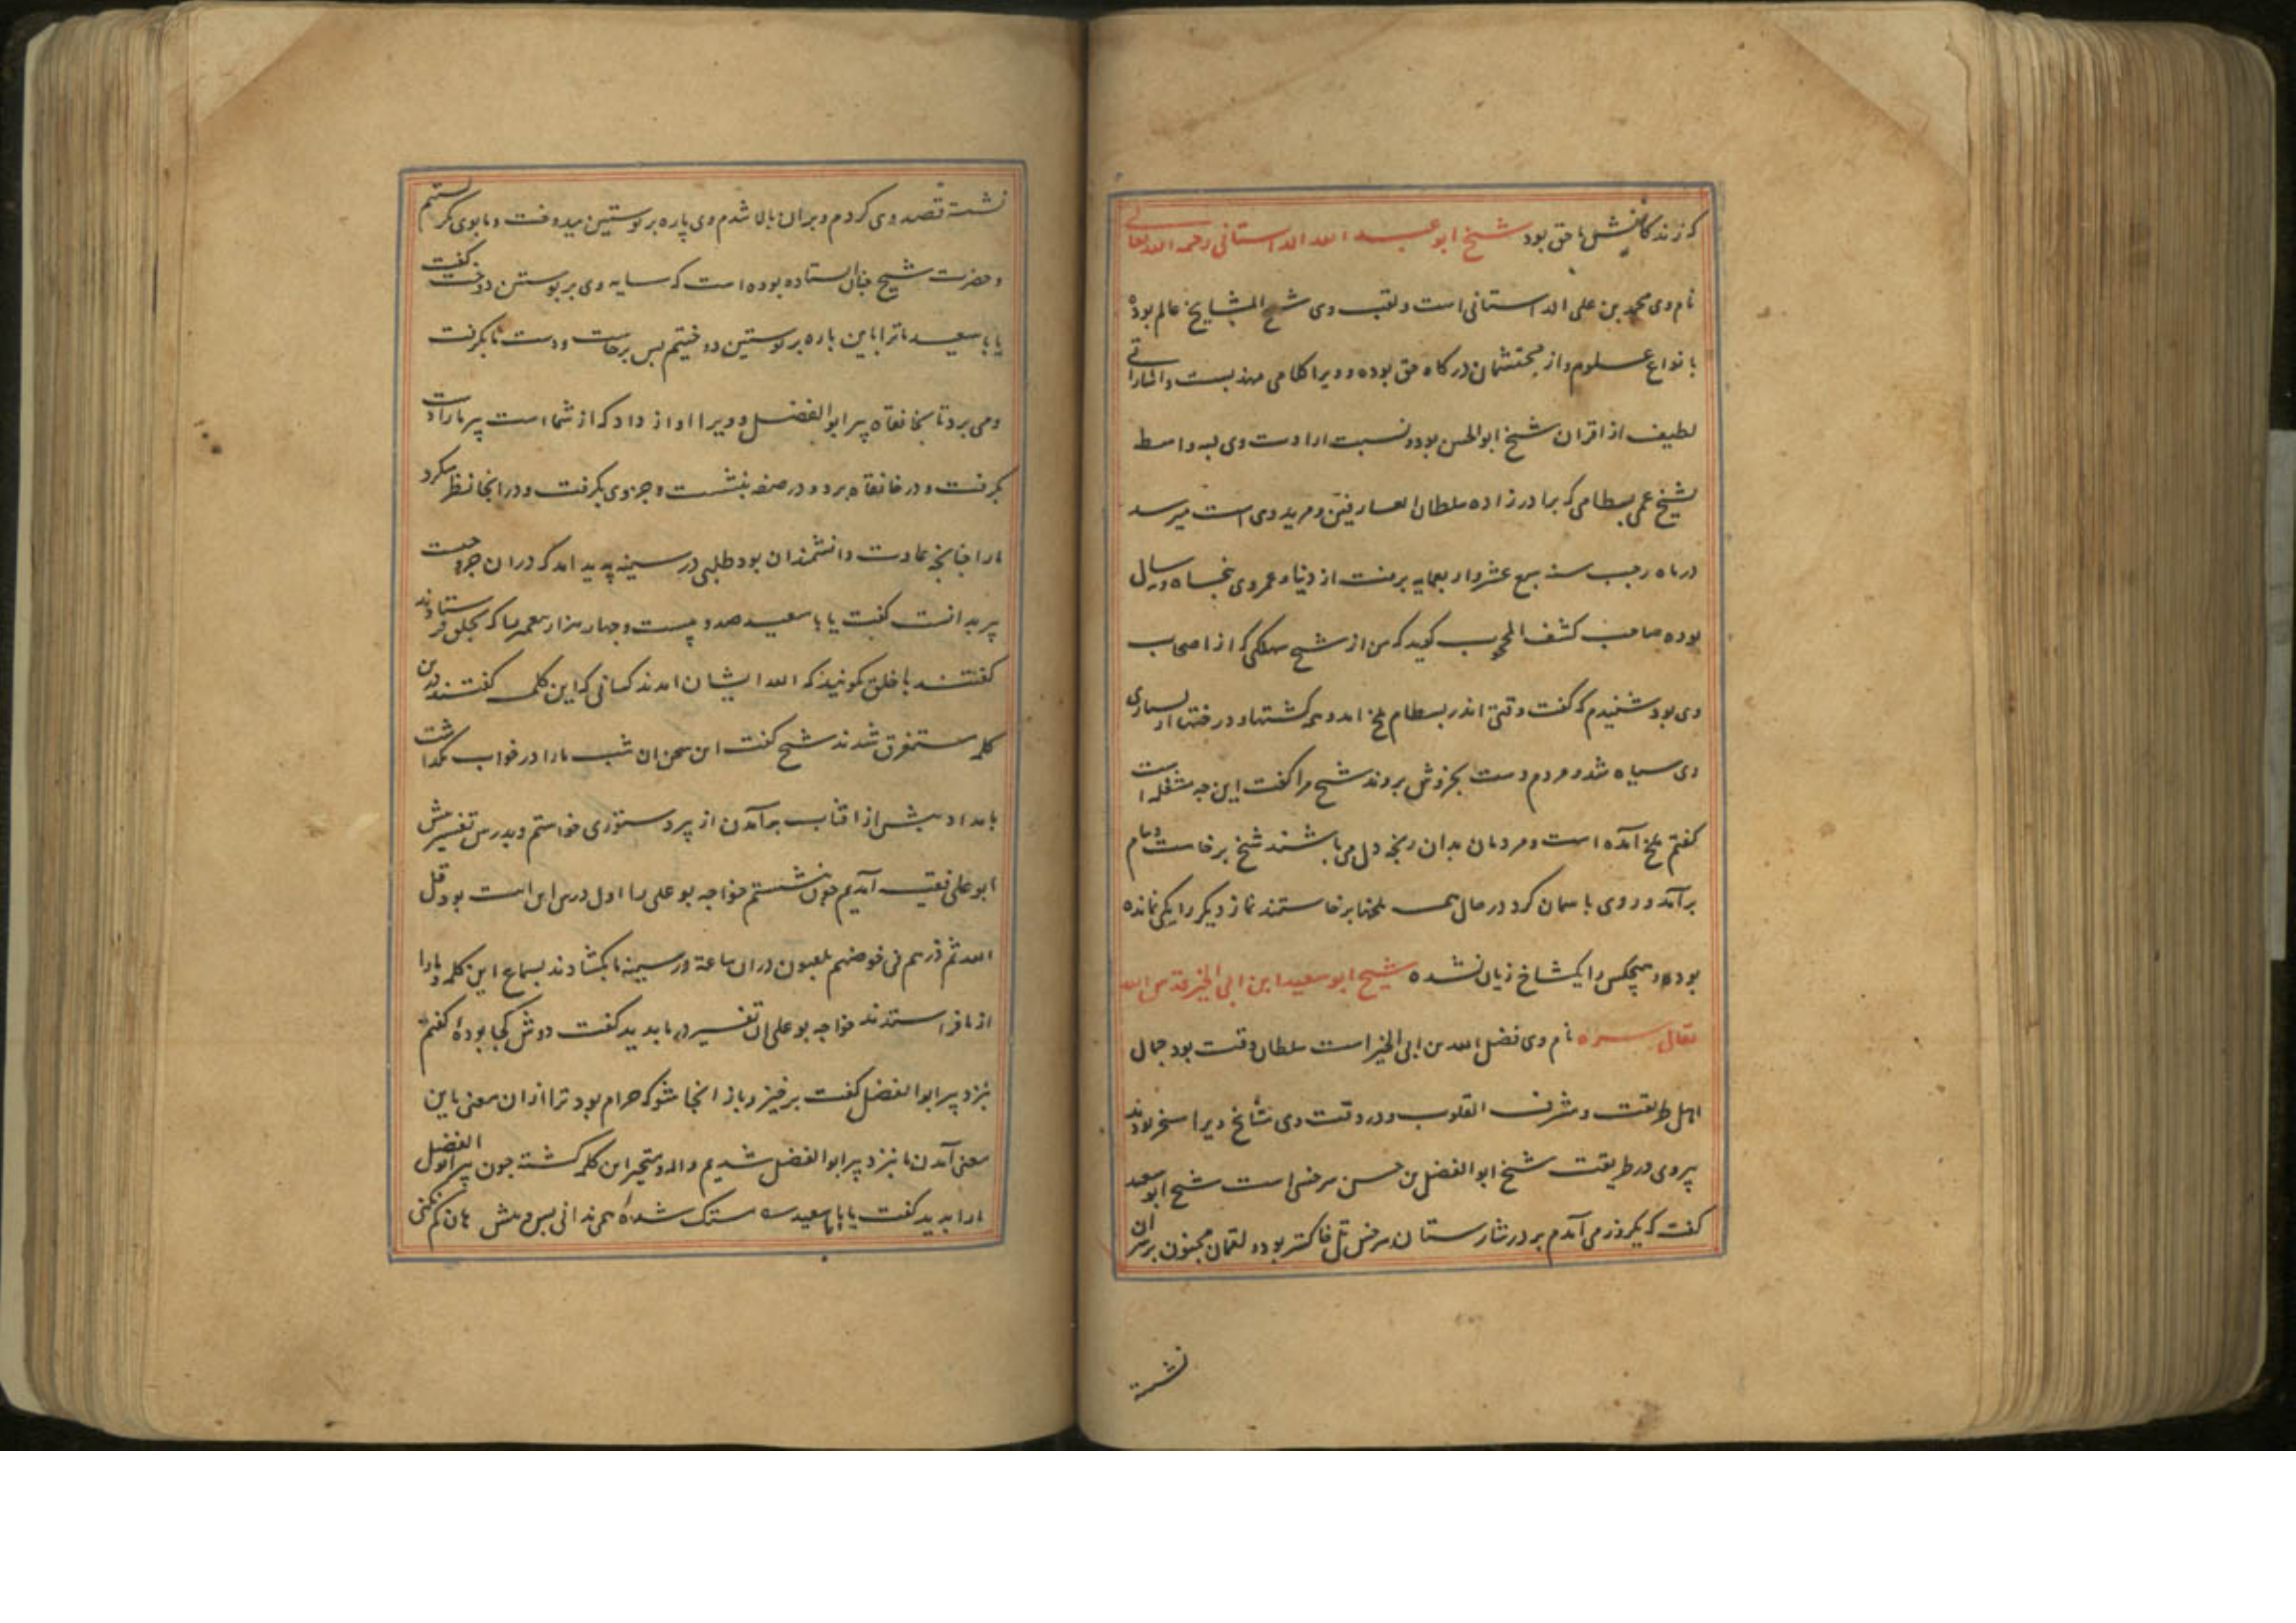 که زندگانیش با حق بود شیخ ابو عبد الله الداستانی رحمه الله تعالی
نام وی محمد بن علی الداستانی است و لقب وی شیخ المشایخ عالم بوده
بانواع علوم و از محتشمان درکاه حق بوده و ویرا کلامی مهذبست و اشاراتی
لطیف از اقران شیخ ابو الحسن بوده و نسبت ارادت وی بسه واسطه
بشیخ عمی بسطامی که برادرزاده سلطان العارفین و مرید وی است میرسد
در ماه رجب سنه سبع عشر و اربعمایه برفت از دنیا و عمر وی پنجاه و نه سال
بوده صاحب کشف المحجوب کوید که من از شیخ سهلکی که از اصحاب
وی بود شنیدم که گفت وقتی اندر بسطام ملخ امد و همه کشتها و درختها از بسیاری
وی سیاه شد و مردم دست بخروش بردند شیخ مرا گفت این چه مشغله است
گفتم ملخ آمده است و مردمان بدان رنجه دل می باشند شیخ برخاست و بام
برآمد و روی باسمان کرد در حال همه ملخها برخاستند نماز دیگر را یکی نمانده
بود و هیچکس را یکشاخ زیان نشده شیخ ابو سعید ابن ابی الخیر قدس الله
تعالی سره نام وی فضل الله بن ابی الخیر است سلطان وقت بود جمال
اهل طریقت و مشرف القلوب و در وقت وی مشایخ ویرا مسخر بودند
پیر وی در طریقت شیخ ابو الفضل بن حسن سرخسی است شیخ ابو سعید
گفت که یکروز می آمدم بر در شارستان سرخس تل خاکستر بود و لقمان مجنون بر سر آن
نشسته
نشسته قصد وی کردم و بران بالا شدم وی پاره بر پوستین میدوخت و ما بوی می نگریستیم
و حضرت شیخ چنان ایستاده بوده است که سایه وی بر پوستین دوخت گفت
یا با سعید ما ترا باین پاره بر پوستین دوختیم پس برخاست و دست ما بگرفت
و می برد تا بخانقاه پیر ابو الفضل و ویرا اواز داد که از شماست پیر ما را دست
بگرفت و در خانقاه برد و در صفه بنشست و جزوی بگرفت و درانجا نظر میکرد
ما را چنانچه عادت دانشمندان بود طلبی در سینه پدید امد که دران جزو چیست
پیر بدانست گفت یا با سعید صد و بیست و چهار هزار پیغمبر را که بخلق فرستادند
گفتند با خلق گوئید که الله ایشان امدند کسانی که این کلمه گفتند درین
کلمه مستغرق شدند شیخ گفت این سخن ان شب ما را در خواب نگذاشت
بامداد پیش از افتاب برآمدن از پیر دستوری خواستم و بدرس تفسیر پیش
ابو علی فقیه آمدیم چون بنشستم خواجه بو علی را اول درس این است بود قل
الله ثم ذرهم فی خوضهم یلعبون دران ساعة در سینه ما بگشادند بسماع این کلمه و ما را
از ما فراستدند خواجه بو علی ان تغییر در ما بدید گفت دوش کجا بوده گفتم
بنزد پیر ابو الفضل گفت برخیز و باز انجا شو که حرام بود ترا ازان معنی باین
معنی آمدن ما بنزد پیر ابو الفضل شدیم واله و متحیر این کلمه کشته چون پیر ابو الفضل
ما را بدید گفت یا با سعید مستک شده همی ندانی پس و پیش هان گم نکنی